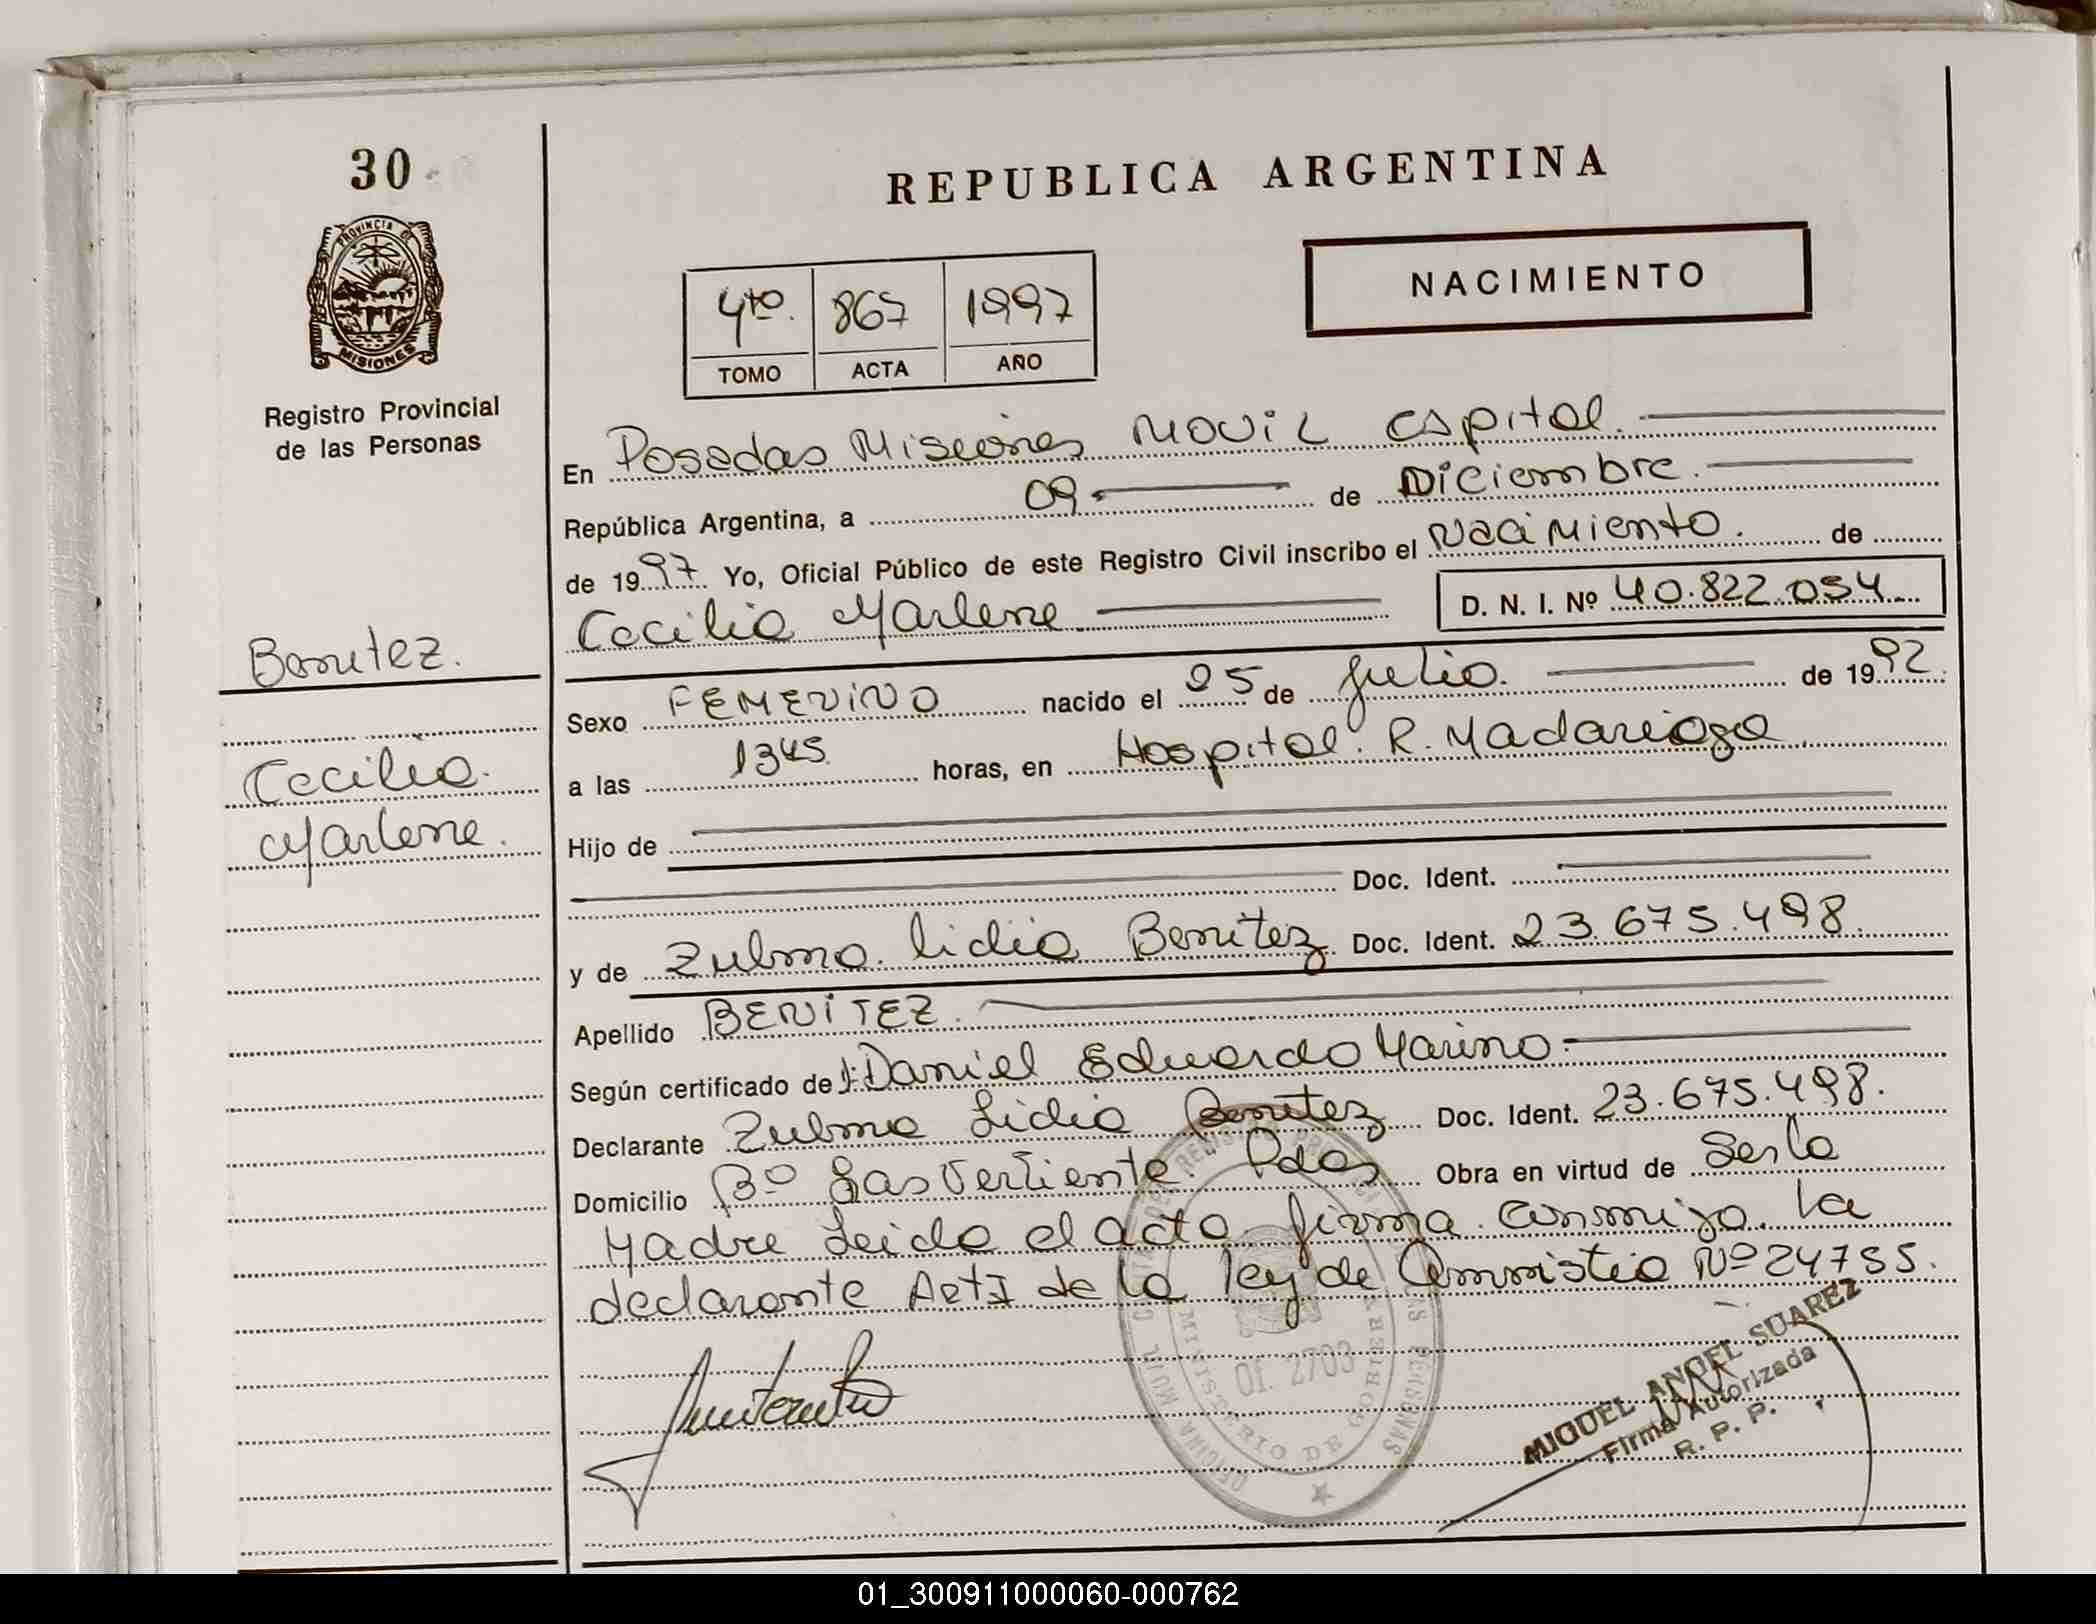 30
PROVINCIA DE
MISIONES
Registro Provincial
de las Personas
REPUBLICA ARGENTINA
NACIMIENTO
4to. 867 1997
TOMO ACTA AÑO
En Posadas Misiones MOVIL Capital.
República Argentina, a 09 de Diciembre.
de 1997. Yo, Oficial Público de este Registro Civil inscribo el Nacimiento. de
Cecilia Marlene. D. N. I. Nº 40.822.054
Benitez.
Sexo FEMENINO nacido el 25 de Julio. de 1992.
Cecilia.
a las 1345 horas, en Hospital. R. Madariaga
Marlene.
Hijo de
Doc. Ident.
y de Zulma. Lidia Benitez Doc. Ident. 23.675.498.
Apellido BENITEZ.
Según certificado de: Daniel Eduardo Marino.
Declarante Zulma Lidia Benitez Doc. Ident. 23.675.498.
Domicilio Bº Las Vertiente. Pdas Obra en virtud de Ser la
Madre Leida el acta firma conmigo la
declarante Art I de la ley de Amnistia Nº 24755.
MINISTERIO DE GOBIERNO
Of. 2703
MIGUEL ANGEL SUAREZ
Firma Autorizada
R. P. P.
01_300911000060-000762